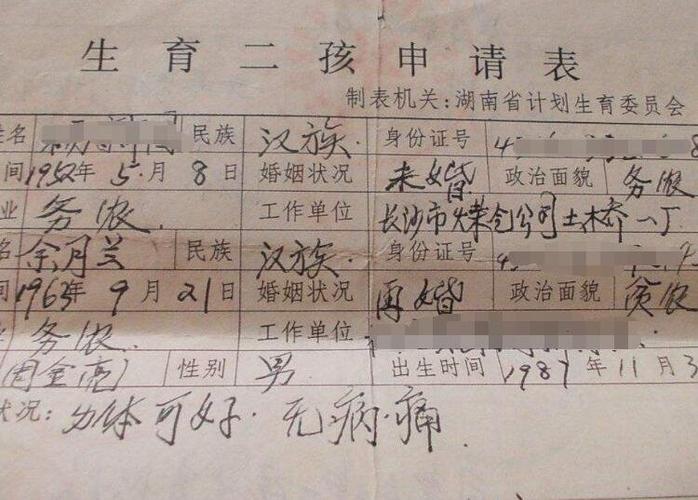 生育二孩申请表
制表机关：湖南省计划生育委员会
姓名 民族 汉族 身份证号 4 8
间 1952年5月8日 婚姻状况 未婚 政治面貌 务农
业 务农 工作单位 长沙市 公司土桥一厂
名 余月兰 民族 汉族 身份证号 4
间 1963年9月21日 婚姻状况 再婚 政治面貌 贫农
务农 工作单位
周金亮) 性别 男 出生时间 1987年11月3
状况：力体可好·无病·痛